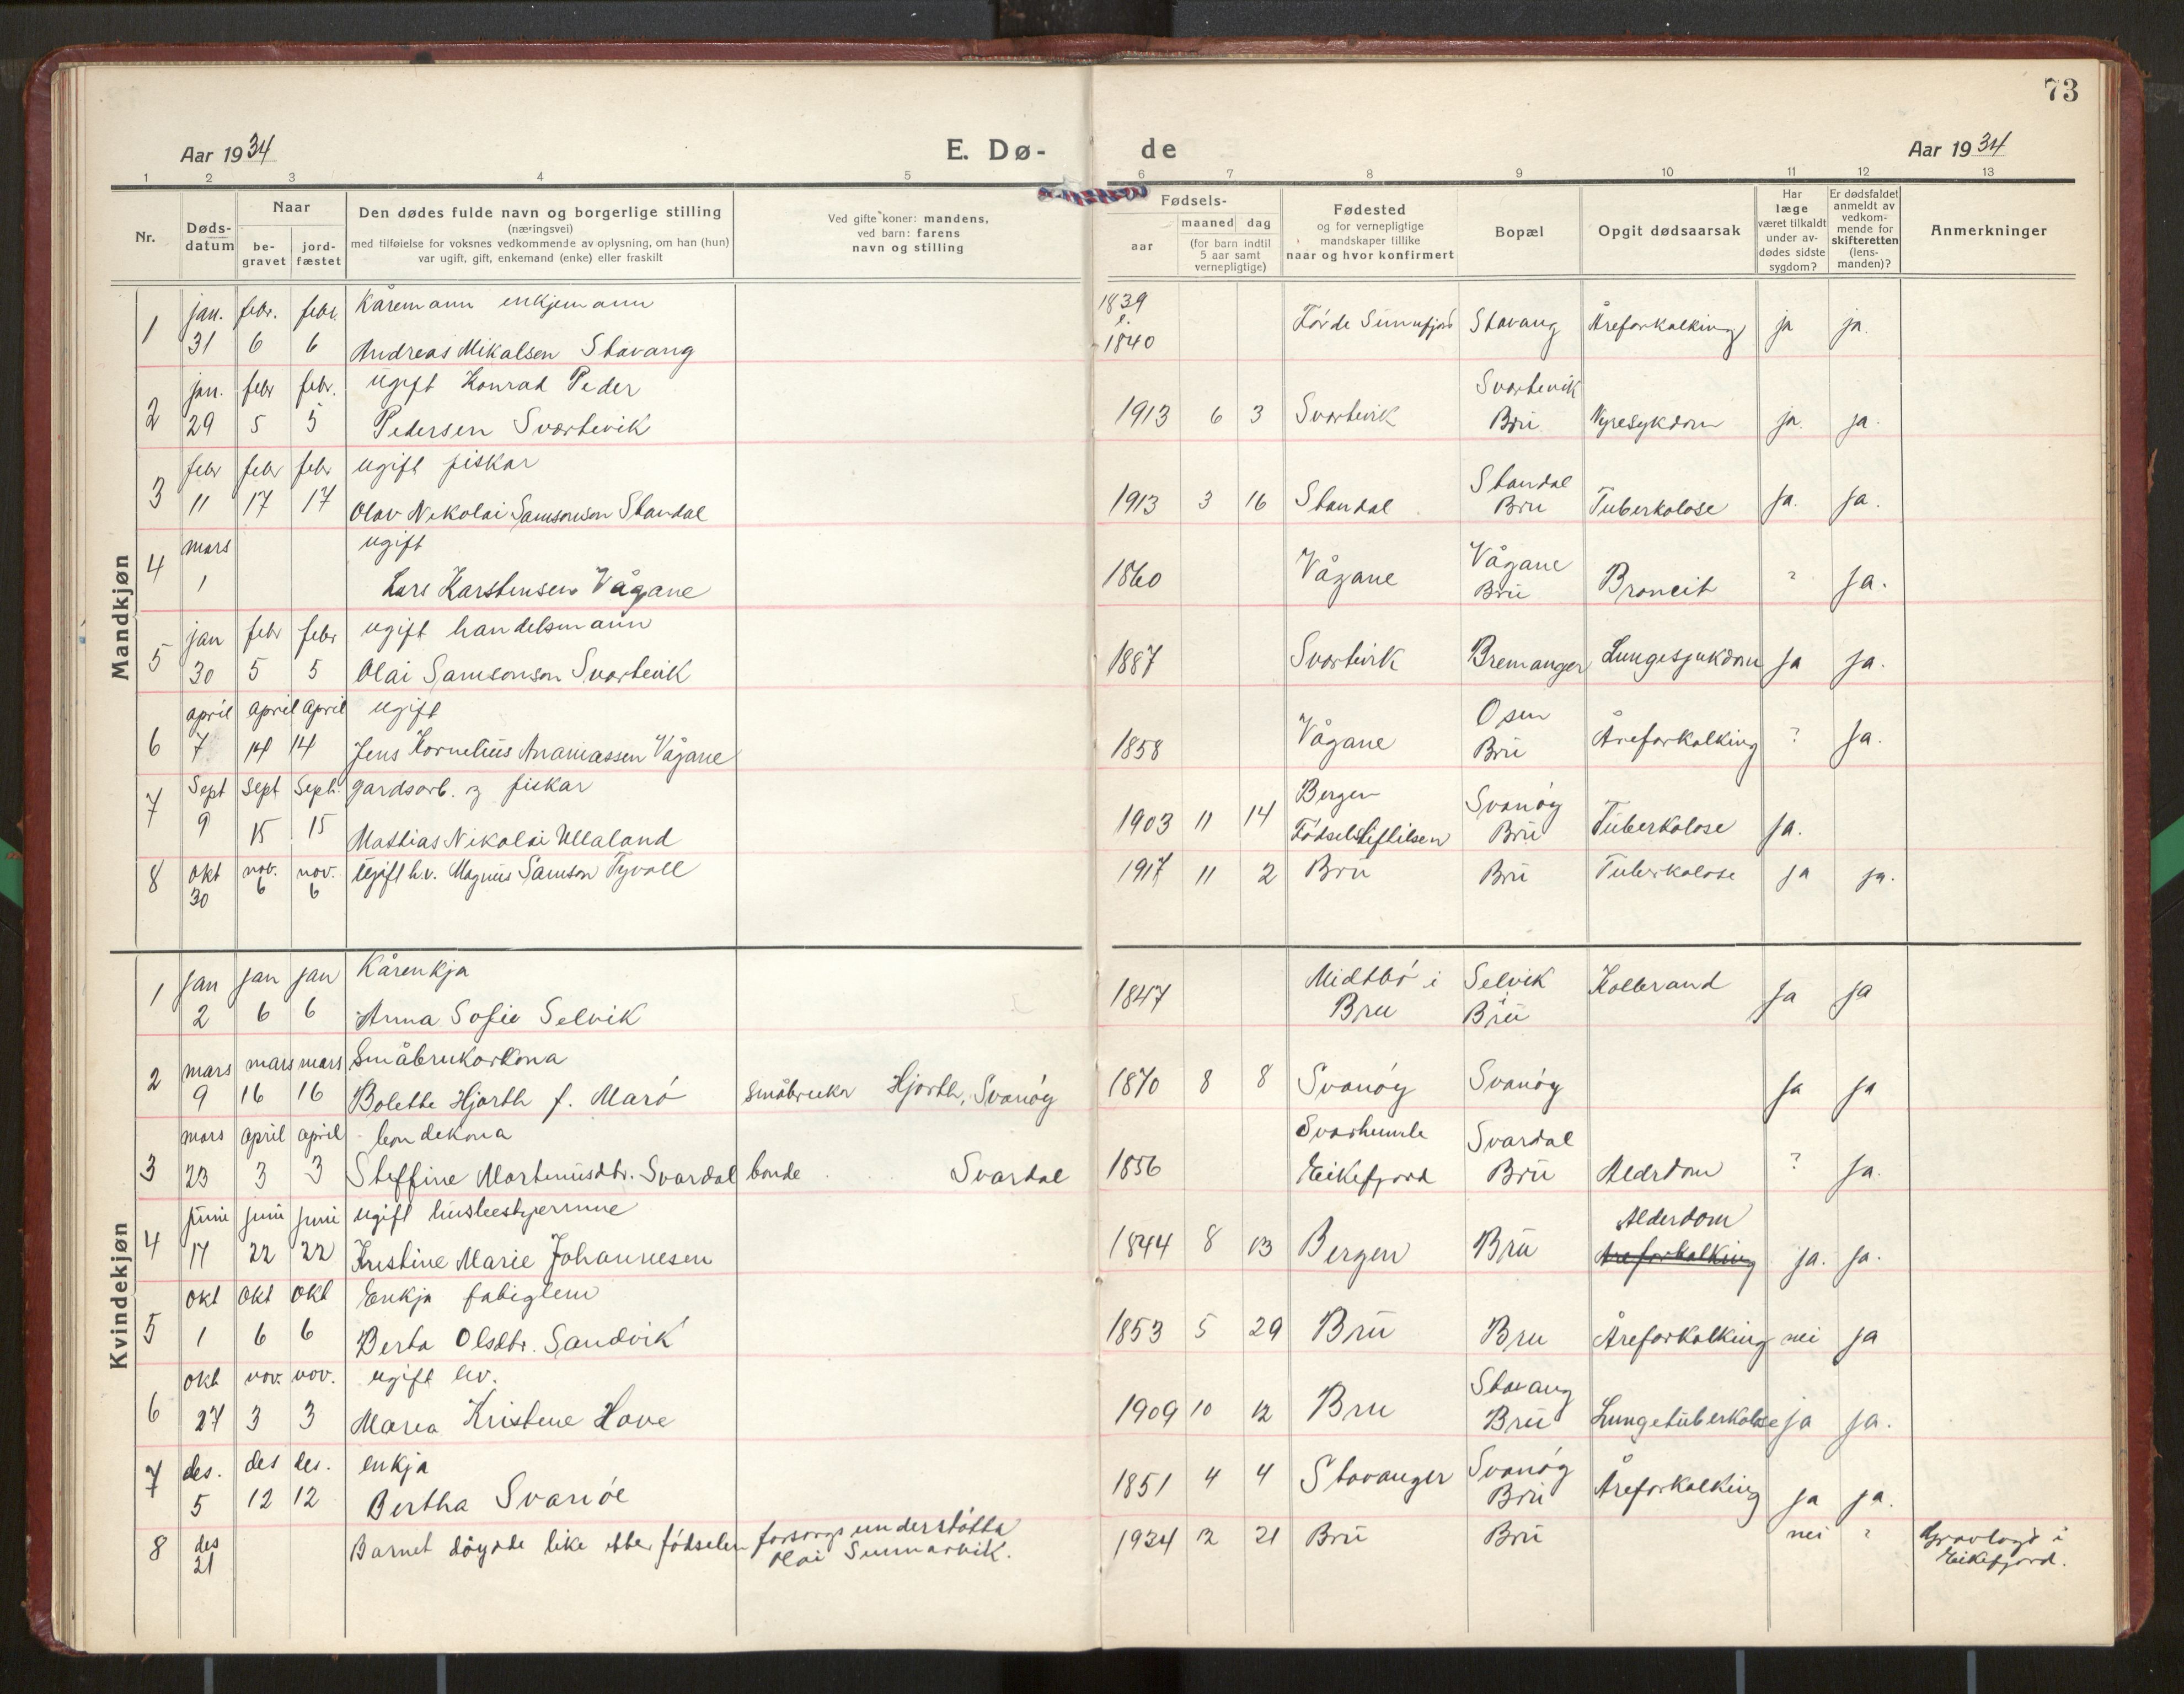 73
Aar 1934
E. Dø-
de
Aar 1934
1 2 3 4 5 6 7 8 9 10 11 12 13
Nr.
Døds-
datum
Naar
be-
gravet
jord-
fæstet
Den dødes fulde navn og borgerlige stilling
(næringsvei)
med tilføielse for voksnes vedkommende av oplysning, om han (hun)
var ugift, gift, enkemand (enke) eller fraskilt
Ved gifte koner: mandens,
ved barn: farens
navn og stilling
Fødsels-
aar
maaned dag
(for barn indtil
5 aar samt
vernepligtige)
Fødested
og for vernepligtige
mandskaper tillike
naar og hvor konfirmert
Bopæl
Opgit dødsaarsak
Har
læge
været tilkaldt
under av-
dødes sidste
sygdom?
Er dødsfaldet
anmeldt av
vedkom-
mende for
skifteretten
(lens-
manden)?
Anmerkninger
Mandkjøn
1 jan. febr. febr. Kåremann enkjemann 1839
31 6 6 Andreas Mikalsen Stavang e. 1840 Førde Sunnfjord Stavang Åreforkalking ja ja.
2 jan. febr febr. ugift Konrad Peder Svortevik
29 5 5 Pedersen Svortevik 1913 6 3 Svortevik Bru Nyresykdom ja. ja.
3 febr febr febr ugift fiskar Standal
11 17 17 Olav Nikolai Samsonson Standal 1913 3 16 Standal Bru Tuberkolose ja. ja.
4 mars ugift Vågane
1 Lars Karstensen Vågane 1860 Vågane Bru Broncit ? ja.
5 jan febr febr ugift handelsmann
30 5 5 Olai Samsonson Svortevik 1887 Svortevik Bremanger Lungesjukdom ja ja.
6 april april april ugift Osen
7 14 14 Jens Kornelius Ananiassen Vågane 1858 Vågane Bru Åreforkalking ? ja.
7 Sept Sept Sept. gardsarb. og fiskar Bergen Svanøy
9 15 15 Mathias Nikolai Ullaland 1903 11 14 Fødselsstiftelsen Bru Tuberkolose ja.
8 okt nov. nov. ugift h.v. Magnus Samson Tyvoll 1917 11 2 Bru Bru Tuberkolose ja ja.
30 6 6
Kvindekjøn
1 jan jan jan Kårenkja Midtbø i Selvik Kolbrand
2 6 6 Anna Sofie Selvik 1847 Bru i Bru ja ja
2 mars mars mars Småbrukarkona
9 16 16 Bolette Hjorth f. Marø småbrukar Hjorth, Svanøy 1870 8 8 Svanøy Svanøy ja ja
3 mars april april bondekona Svarhumle Svardal
23 3 3 Steffine Martinusdtr. Svardal bonde Svardal 1856 Eikefjord Bru Alderdom ? ja.
4 juni juni juni ugift Alderdom
17 22 22 Kristine Marie Johannesen 1844 8 13 Bergen Bru Åreforkalking ja. ja.
5 okt okt okt Enkja fatiglem
1 6 6 Berta Olsdtr. Sandvik 1853 5 29 Bru Bru Åreforkalking nei ja
6 okt nov. nov. ugift hv. Stavang
27 3 3 Maria Kristine Hove 1909 10 12 Bru Bru Lungetuberkolose ja ja.
7 des. des des. enkja Svanøy
5 12 12 Bertha Svanøe 1851 4 4 Stavanger Bru Åreforkalking ja ja.
8 des Barnet døydde like etter fødselen forsorgsunderstøtta 1934 12 21 Bru Bru nei ? Gravlagt i
21 Olai Sunnarvik. Eikefjord.